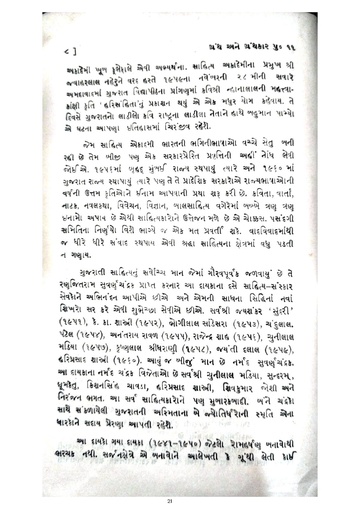 ૮ ]
ગ્રંથ અને ગ્રંથકાર પુ૦ ૧૧
અકાદેમી ખૂબ ફૂલેફાલે એવી અભ્યર્થના. સાહિત્ય અકાદેમીના પ્રમુખ શ્રી
જવાહરલાલ નહેરુને વરદ હસ્તે ૧૯૫૯ના નવેમ્બરની ૨૮મીની સવારે
અમદાવાદમાં ગુજરાત વિદ્યાપીઠના પ્રાંગણમાં કવિશ્રી ન્હાનાલાલની મહત્ત્વા-
કાંક્ષી કૃતિ ‘હરિસંહિતા’નું પ્રકાશન થયું એ એક મધુર યોગ કહેવાય. તે
દિવસે ગુજરાતના લાડીલા કવિ રાષ્ટ્રના લાડીલા નેતાને હાથે બહુમાન પામ્યા
એ ઘટના આપણા ઇતિહાસમાં ચિરંજીવ રહેશે.
જેમ સાહિત્ય એકાદમી ભારતની ભગિનીભાષાઓ વચ્ચે સેતુ બની
રહી છે તેમ બીજી પણ એક સરકારપ્રેરિત પ્રવૃત્તિની અહીં નોંધ લેવી
જોઈએ. ૧૯૫૬માં બૃહદ્ મુંબઈ રાજ્ય સ્થપાયું ત્યારે અને ૧૯૬૦માં
ગુજરાત રાજ્ય સ્થપાયું ત્યારે પણ તે તે પ્રાદેશિક સરકારોએ રાજ્યભાષાઓની
વર્ષની ઉત્તમ કૃતિઓને ઈનામ આપવાની પ્રથા શરૂ કરી છે. કવિતા, વાર્તા,
નાટક, નવલકથા, વિવેચન, વિજ્ઞાન, બાલસાહિત્ય વગેરેમાં બબ્બે ત્રણ ત્રણ
ઇનામો અપાય છે એથી સાહિત્યકારોને ઉત્તેજન મળે છે એ ચોક્કસ. પસંદગી
સમિતિના નિર્ણયો વિશે ભાગ્યે જ એક મત પ્રવર્તી શકે. વાદવિવાદમાંથી
જ ધીરે ધીરે સંવાદ સ્થપાય એવી શ્રદ્ધા સાહિત્યના ક્ષેત્રમાં વધુ પડતી
ન ગણાય.
ગુજરાતી સાહિત્યનું સર્વોચ્ચ માન જેમાં ગૌરવપૂર્વક જળવાયું છે તે
રણજિતરામ સુવર્ણચંદ્રક પ્રાપ્ત કરનાર આ દાયકાના દસે સાહિત્ય-સંસ્કાર
સેવકોને અભિનંદન આપીએ છીએ અને એમની સાધના સિદ્ધિનાં નવાં
શિખરો સર કરે એવી શુભેચ્છા સેવીએ છીએ. સર્વશ્રી જયશંકર ‘સુંદરી’
(૧૯૫૧), કે. કા. શાસ્ત્રી (૧૯૫૨), ભોગીલાલ સાંડેસરા (૧૯૫૩), ચંદુલાલ.
પટેલ (૧૯૫૪), અનંતરાય રાવળ (૧૯૫૫), રાજેન્દ્ર શાહ (૧૯૫૬), ચુનીલાલ
મડિયા (૧૯૫૭), કૃષ્ણલાલ શ્રીધરાણી (૧૯૫૮), જયંતી દલાલ (૧૯૫૯),
હરિપ્રસાદ શાસ્ત્રી (૧૯૬૦). આવું જ બીજું માન છે નર્મદ સુવર્ણચંદ્રક.
આ દાયકાના નર્મદ ચંદ્રક વિજેતાઓ છે સર્વશ્રી ચુનીલાલ મડિયા, સુન્દરમ્,
ધૂમકેતુ, કિશનસિંહ ચાવડા, હરિપ્રસાદ શાસ્ત્રી, શિવકુમાર જોશી અને
નિરંજન ભગત. આ સર્વ સાહિત્યકારોને પણ મુબારકબાદી. બંને ચંદ્રકો
સાથે સંકળાયેલી ગુજરાતની અસ્મિતાના એ જ્યોતિર્ધરોની સ્મૃતિ એના
ધારકોને સદાય પ્રેરણા આપતી રહેશે.
આ દાયકો ગયા દાયકા (૧૯૪૧-૧૯૫૦) જેટલો રામહર્ષણ બનાવોથી
ભરચક નથી. સર્જનક્ષેત્રે એ બનાવોને આલેખતી કે ગૂંથી લેતી કોઈ
21